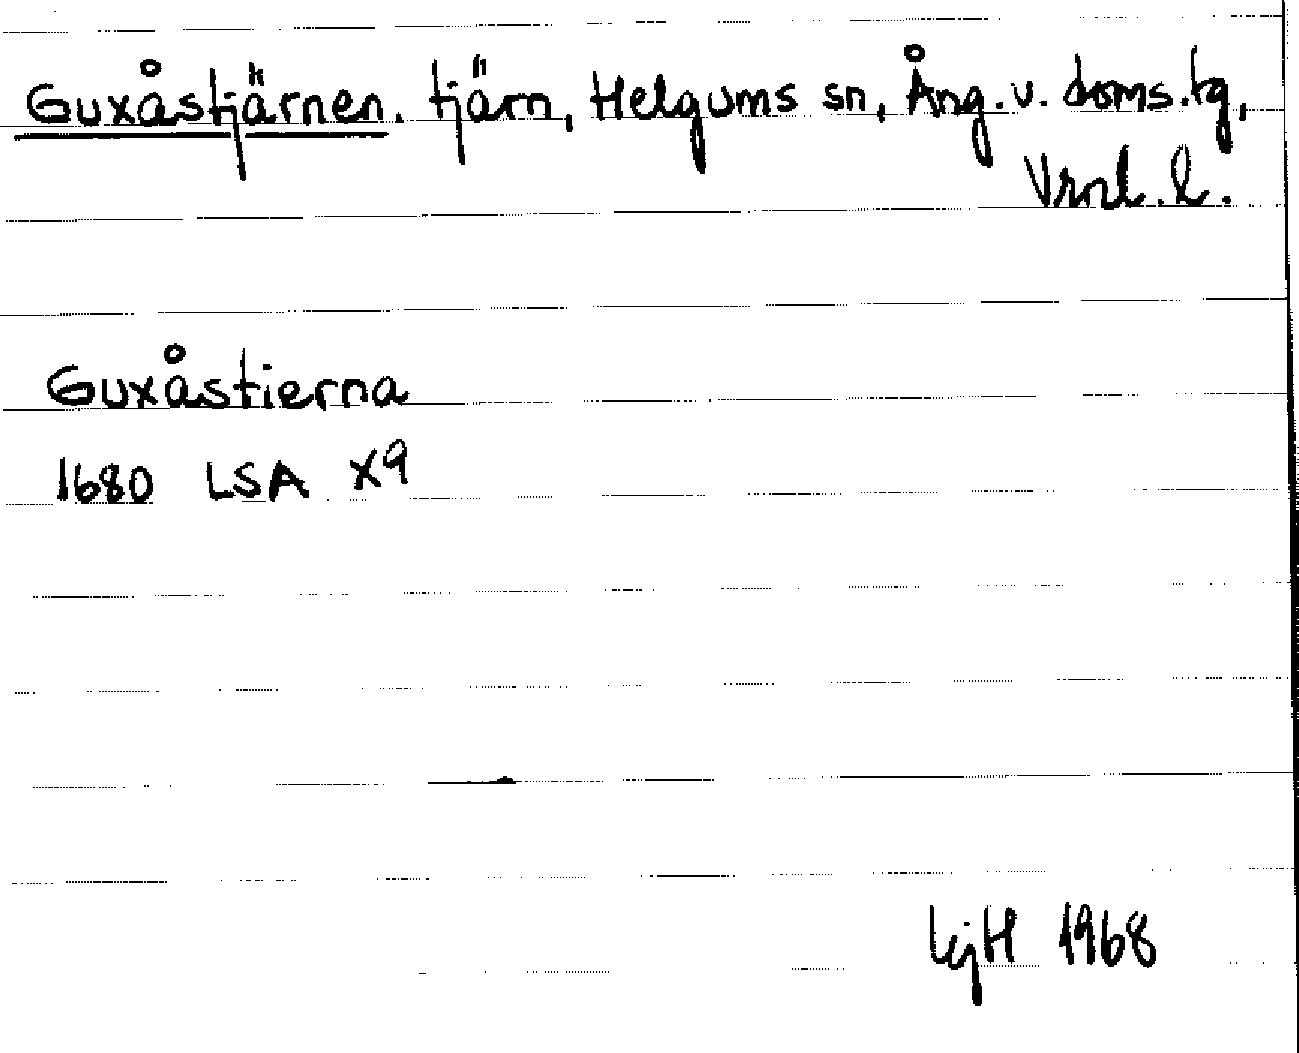 Guxåstjärnen. tjärn, Helgums sn, Ång. v. doms. tg,
Vrnl. l.
Guxåstierna
1680 LSA X9
1968